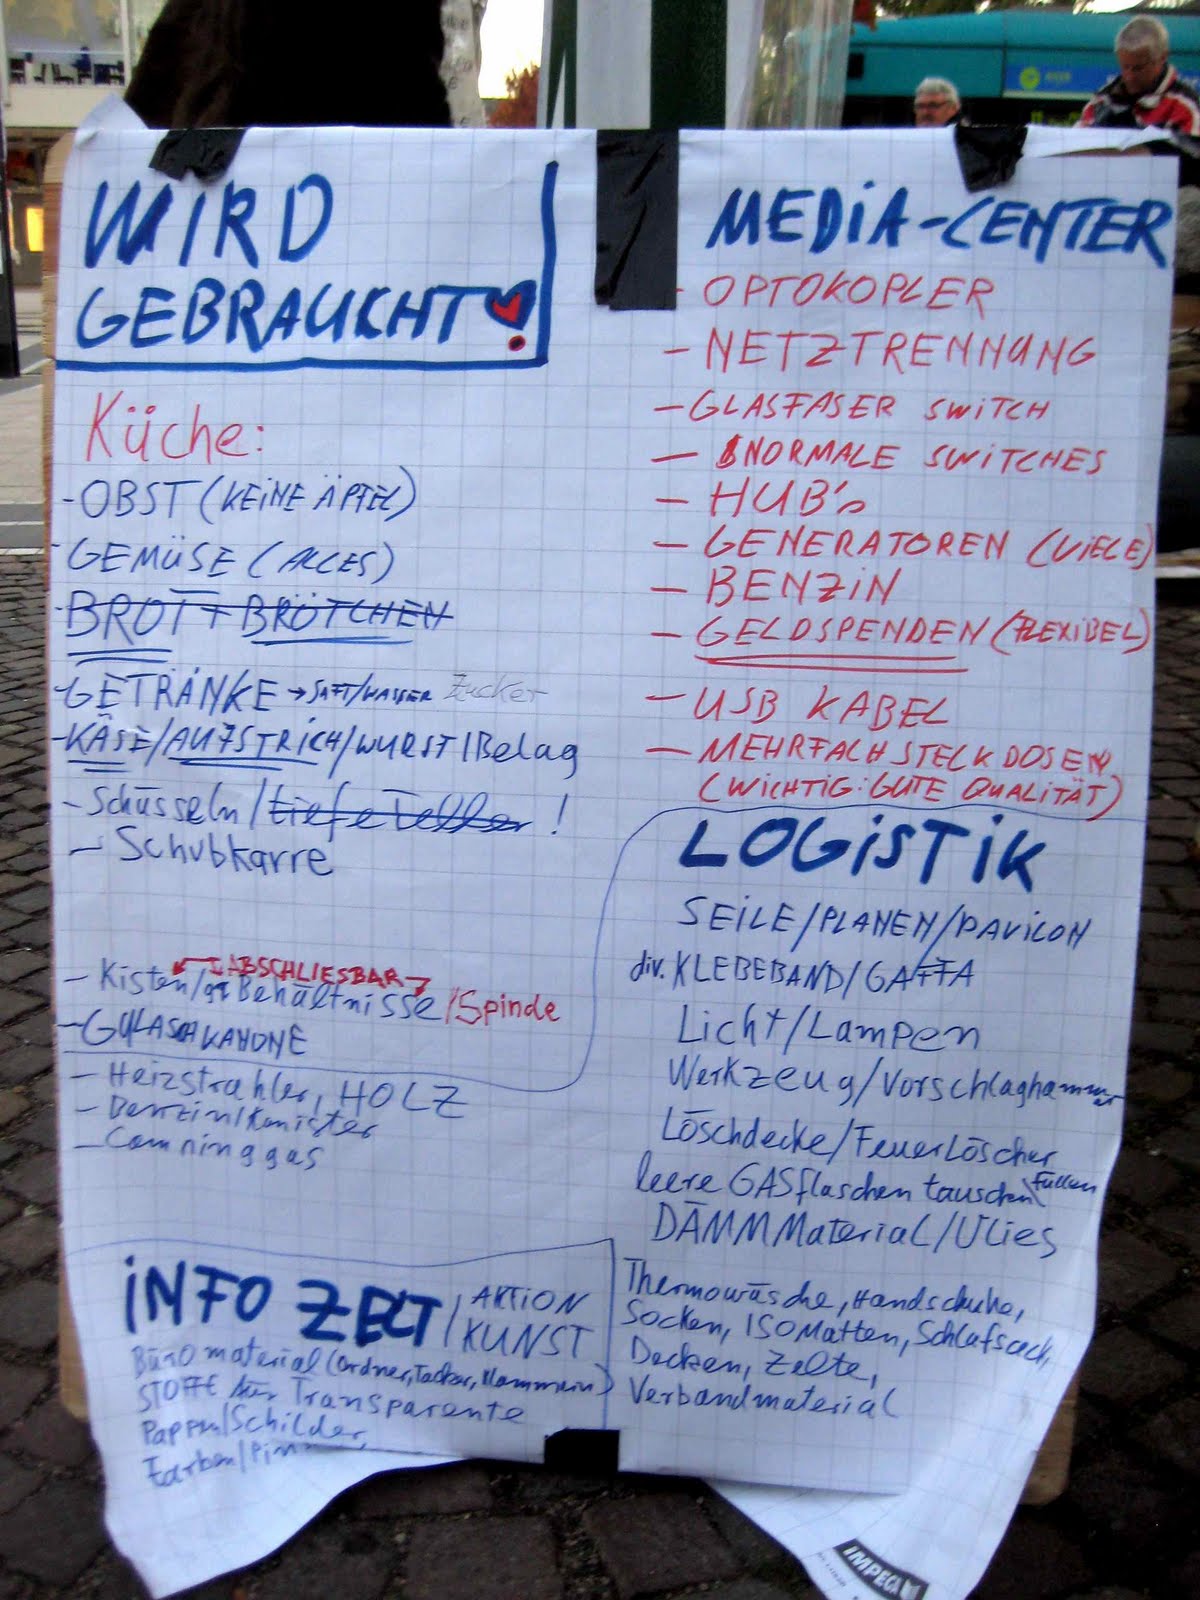 WIRD
GEBRAUCHT!
Küche:
-OBST (KEINE ÄPFEL)
-GEMÜSE (ALLES)
-BROT + BRÖTCHEN
-GETRÄNKE → SAFT/WASSER Zucker
-KÄSE/AUFSTRICH/WURST/Belag
-Schüsseln/tiefe Teller !
- Schubkarre
ABSCHLIESBAR
- Kisten/gr Behältnisse/Spinde
-GULASCHKANONE
- Heizstrahler, HOLZ
- Benzin/Kanister
- Campinggas
INFO ZELT/AKTION
KUNST
Büromaterial (Ordner, Tacker, Klammern)
STOFFE für Transparente
Pappen/Schilder,
Farben/Pin
MEDIA-CENTER
- OPTOKOPLER
- NETZTRENNUNG
- GLASFASER SWITCH
- NORMALE SWITCHES
- HUB's
- GENERATOREN (VIELE)
- BENZIN
- GELDSPENDEN (FLEXIBEL)
- USB KABEL
- MEHRFACHSTECKDOSEN
(WICHTIG: GUTE QUALITÄT)
LOGISTIK
SEILE/PLANEN/PAVILON
div. KLEBEBAND/GAFFA
Licht/Lampen
Werkzeug/Vorschlaghammer
Löschdecke/Feuerlöscher
leere GASflaschen tauschen/füllen
DÄMMMaterial/Vlies
Thermowäsche, Handschuhe,
Socken, ISOMatten, Schlafsack,
Decken, Zelte,
Verbandmaterial
IMPEGA